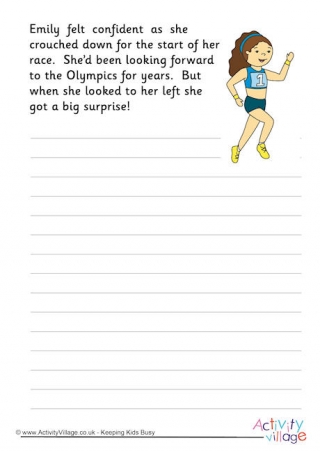 Emily felt confident as she
crouched down for the start of her
race. She'd been looking forward
to the Olympics for years. But
when she looked to her left she
got a big surprise!
1
© www.ActivityVillage.co.uk - Keeping Kids Busy
Activity
Village